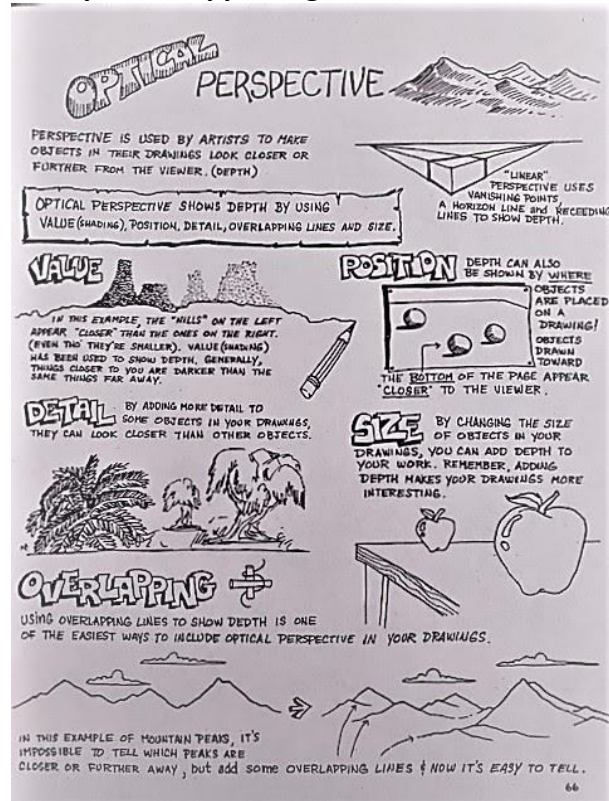 OPTICAL
PERSPECTIVE
PERSPECTIVE IS USED BY ARTISTS TO MAKE
OBJECTS IN THEIR DRAWINGS LOOK CLOSER OR
FURTHER FROM THE VIEWER. (DEPTH)
"LINEAR"
PERSPECTIVE USES
VANISHING POINTS
A HORIZON LINE and RECEEDING
LINES TO SHOW DEPTH.
OPTICAL PERSPECTIVE SHOWS DEPTH BY USING
VALUE (SHADING), POSITION, DETAIL, OVERLAPPING LINES AND SIZE.
VALUE
IN THIS EXAMPLE, THE "HILLS" ON THE LEFT
APPEAR "CLOSER" THAN THE ONES ON THE RIGHT.
(EVEN THO' THEY'RE SMALLER). VALUE (SHADING)
HAS BEEN USED TO SHOW DEPTH. GENERALLY,
THINGS CLOSER TO YOU ARE DARKER THAN THE
SAME THINGS FAR AWAY.
POSITION DEPTH CAN ALSO
BE SHOWN BY WHERE
OBJECTS
ARE PLACED
ON A
DRAWING!
OBJECTS
DRAWN
TOWARD
THE BOTTOM OF THE PAGE APPEAR
"CLOSER" TO THE VIEWER.
DETAIL BY ADDING MORE DETAIL TO
SOME OBJECTS IN YOUR DRAWINGS,
THEY CAN LOOK CLOSER THAN OTHER OBJECTS.
SIZE BY CHANGING THE SIZE
OF OBJECTS IN YOUR
DRAWINGS, YOU CAN ADD DEPTH TO
YOUR WORK. REMEMBER, ADDING
DEPTH MAKES YOUR DRAWINGS MORE
INTERESTING.
OVERLAPPING
USING OVERLAPPING LINES TO SHOW DEPTH IS ONE
OF THE EASIEST WAYS TO INCLUDE OPTICAL PERSPECTIVE IN YOUR DRAWINGS.
IN THIS EXAMPLE OF MOUNTAIN PEAKS, IT'S
IMPOSSIBLE TO TELL WHICH PEAKS ARE
CLOSER OR FURTHER AWAY, but add some OVERLAPPING LINES & NOW IT'S EASY TO TELL.
66